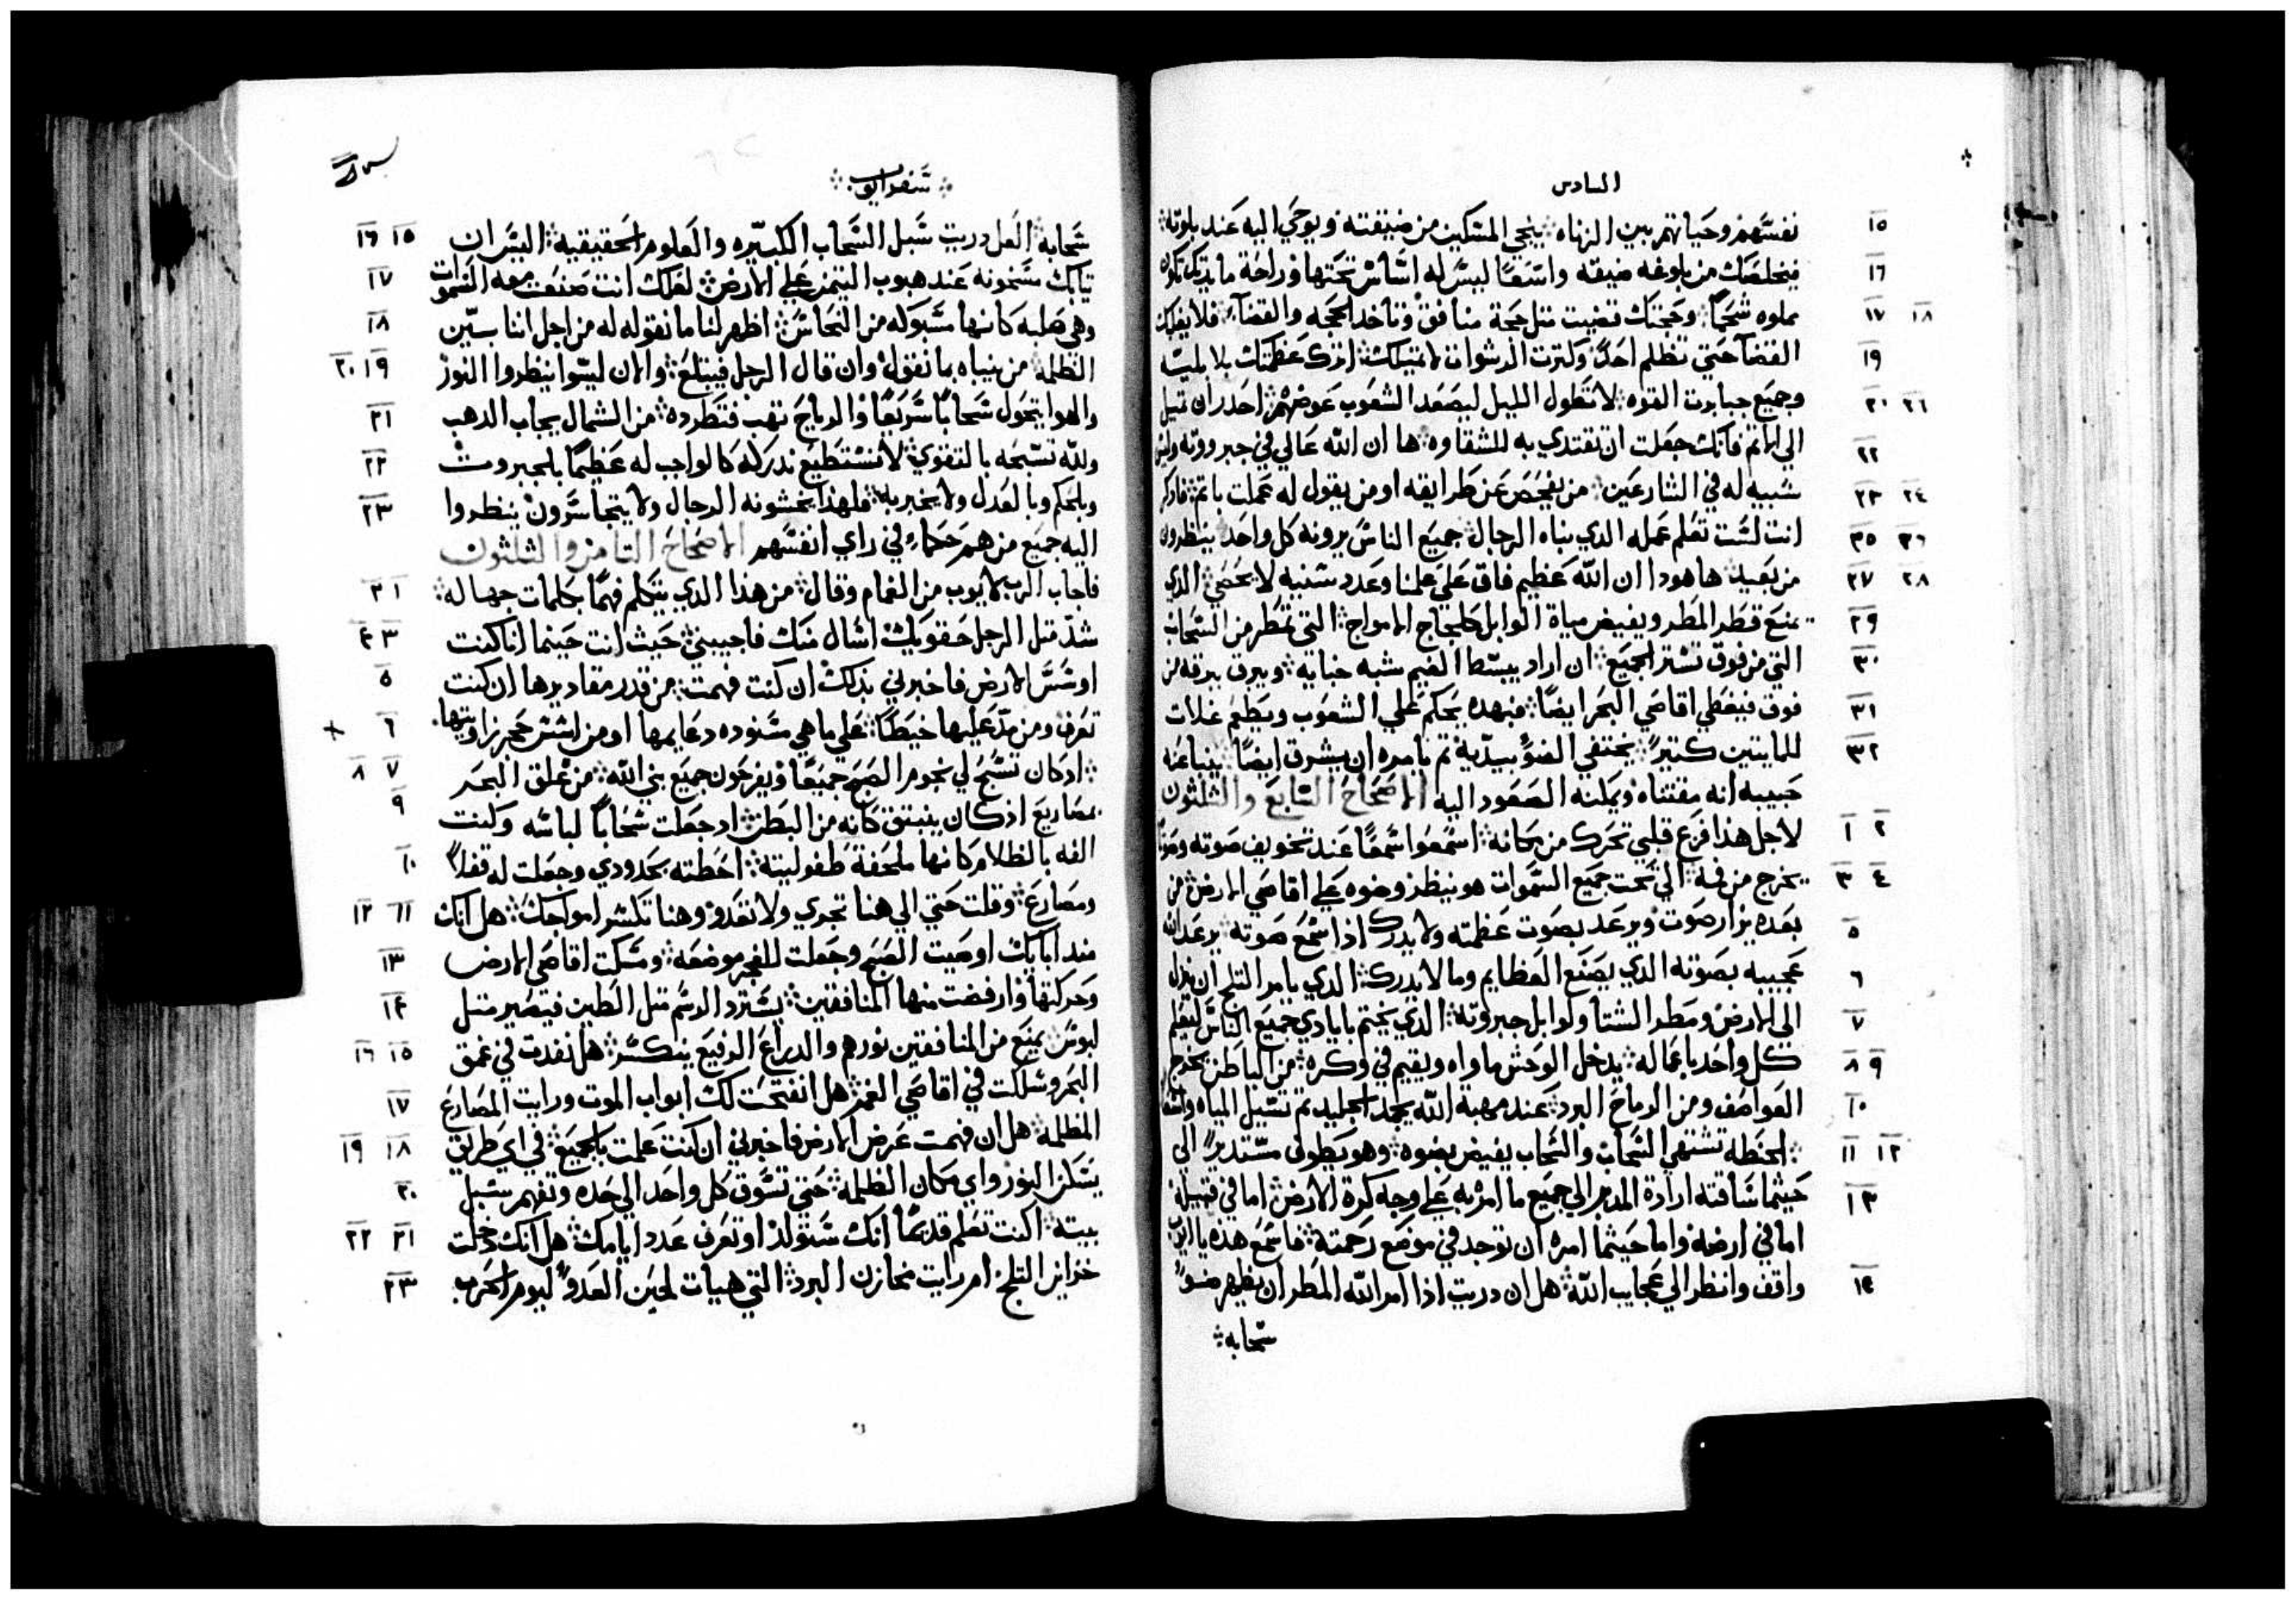 السادس
١٥ نفسهم وحياتهم بين الزناه ❖ ينجي المسكين من ضيقته ويوحي اليه عند بلوته ❖
١٦ فيخلصك من بلوغه ضيقه واسعًا ليس له اساس تحتها وراحة مايدتك تكون
١٨ ١٧ مملوه شحمًا ❖ وحجتك قضيت متل حجة منافق وتاخد الحجه والقضآء ❖ فلا يغلبك
١٩ القضآ حتي تظلم احدًا وكترت الرشوات لا تميلك ❖ اترك عظمتك بلا بليت
٢١ ٢٠ وجميع جبابرت القوه ❖ لا تطول الليل ليصعد الشعوب عوضهم ❖ احدر ان تميل
٢٢ الي الاتم فانك جعلت ان تقتدي به للشقاوه ❖ ها ان الله عالي في جبروته وليس
٢٤ ٢٣ شبيه له في الشارعين ❖ من يفحص عن طرايقه او من يقول له عملت باتم ❖ فادكر
٢٦ ٢٥ انت لست تعلم عمله الدي نباه الرجال ❖ جميع الناس يرونه كل واحد ينظرون
٢٨ ٢٧ من بعيد ❖ ها هودا ان الله عظيم فاق علي علمنا وعدد سنيه لا يحصي ❖ الدي
٢٩ يمنع قطر المطر ويفيض مياة الوابل كلجاج الامواج ❖ التي تمطر من السحاب
٣٠ التي من فوق تستر الجميع ❖ ان اراد يبسط الغيم شبه خبايه ❖ ويبرق ببرقه من
٣١ فوق فيغطي اقاصي البحر ايضًا ❖ فبهده يحكم علي الشعوب ويطعم غلات
٣٢ للمايتين كتيرًا ❖ يختفي الضوء بيديه تم يامره ان يشرق ايضًا ❖ ينبا عنه
حبيبه انه مقتناه ويمكنه الصعود اليه الاصحاح السابع والثلثون
٢ ١ لاجل هذا فزع قلبي تحرك من مكانه ❖ اسمعوا سمعًا عند تخويف صوته وصوت
٤ ٣ يخرج من فيه ❖ الي تحت جميع السموات هو ينظر وضوه علي اقاصي الارض ❖ من
٥ بعده يزار صوت ويرعد بصوت عظمته ولا يدرك اذا سمع صوته ❖ يرعد الله
٦ عجيبه بصوته الدي يصنع العظايم وما لا يدرك ❖ الدي يامر التلج ان ينزل
٧ الي الارض ومطر الشتا ولوابل جبروته ❖ الدي يختم بايادي جميع الناس ليعلم
٩ ٨ كل واحد باعماله ❖ يدخل الوحش ماواه ويقيم في وكره ❖ من الباطن يخرج
١٠ العواصف ومن الرياح البرد ❖ عند مهبة الله يجمد الجليد تم تسيل المياه
١٢ ١١ الحنطة تشتهي السحاب والسحاب يفيض بضوه ❖ وهو يطوف مستديرًا الي
١٣ حيثما شاقته ارادة المدبر الي جميع ما امر به علي وجه كرة الارض ❖ اما في قبيلة
اما في ارضه واما حيثما امره ان توجد في موضع رحمته ❖ فاسمع هده يا ايوب
١٤ واقف وانظر الي عجايب الله ❖ هل ان دريت اذا امر الله المطر ان يظهر ضوء
سحابه ❖
سفر ايوب ❖
١٥ ١٦ سحابه ❖ العل دريت سبل السحاب الكبيره والعلوم الحقيقيه ❖ اليس ان
١٧ تيابك سخونه عند هبوب التيمن علي الارض ❖ لعلك انت صنعت معه السموات
١٨ وهي صلبه كانها مسبوكه من النحاس ❖ اظهر لنا ما نقوله له من اجل اننا سيين
١٩ ٢٠ الظلمه ❖ من نباه بما نقول وان قال الرجل فيبتلع ❖ والان ليسوا ينظروا النور
٢١ والهوا يتحول سحابًا سريعًا والرياح تهب فتطرده ❖ من الشمال يجاب الدهب
٢٢ ولله تسبحه بالتقوي ❖ لا نستطيع ندركه كالواجب له عظيمًا بالجبروت
٢٣ وبالحكم وبالعدل ولا يخبر به ❖ فلهذا يخشونه الرجال ولا يتجاسرون ينظروا
اليه جميع من هم حكماء في راي انفسهم الاصحاح التامن والثلثون
١ ٢ فاجاب الرب لايوب من الغمام وقال ❖ من هذا الدي يتكلم فهمًا بكلمات جهاله ❖
٣ ٤ شد متل الرجل حقويك اسال منك فاجيبني ❖ حيث انت حينما انا كنت
٥ اوسس الارض فاخبرني بدلك ان كنت فهمت ❖ من قدر مقاديرها ان كنت
٦ تعرف ومن مد عليها خيطًا ❖ علي ما هي مسنوده دعايمها او من اسس حجر زاويتها
٧ ٨ اد كان تسبح لي نجوم الصبح جميعًا ويفرحون جميع بني الله ❖ من غلق البحر
٩ بمصاريع اذ كان ينبتق كانه من البطن ❖ اد جعلت سحابًا لباسه وكنت
١٠ الفه بالظلام كانها ملحفة طفوليته ❖ احطته بحدودي وجعلت له قفلًا
١١ ١٢ ومصارع ❖ وقلت حتي الي هنا تجري ولا تعدو وهنا تكسر امواجك ❖ هل انك
١٣ مند ايامك اوصيت الصبح وجعلت للفجر موضعه ❖ ومسكت اقاصي الارض
١٤ وحركتها وارفضت منها المنافقين ❖ يسترد الرسم متل الطين فيصير متل
١٥ ١٦ لبوس ❖ يمنع من المنافقين نورهم والدراع الرفيع ينكسر ❖ هل نفدت في عمق
١٧ البحر وسلكت في اقاصي الغمر ❖ هل انفتحت لك ابواب الموت ورايت المصارع
١٨ ١٩ المظلمه ❖ هل ان فهمت عرض الارض فاخبرني ان كنت علمت بالجميع ❖ في اي طريق
٢٠ يسكن النور واي مكان الظلمة ❖ حتي تسوق كل واحد الي حده وتفهم سبل
٢١ ٢٢ بيته ❖ اكنت تعلم قديمًا انك ستولد او تعرف عدد ايامك ❖ هل انك دخلت
٢٣ خزاين التلج ام رايت مخازن البرد ❖ التي هيات لحين العدو ليوم الحرب